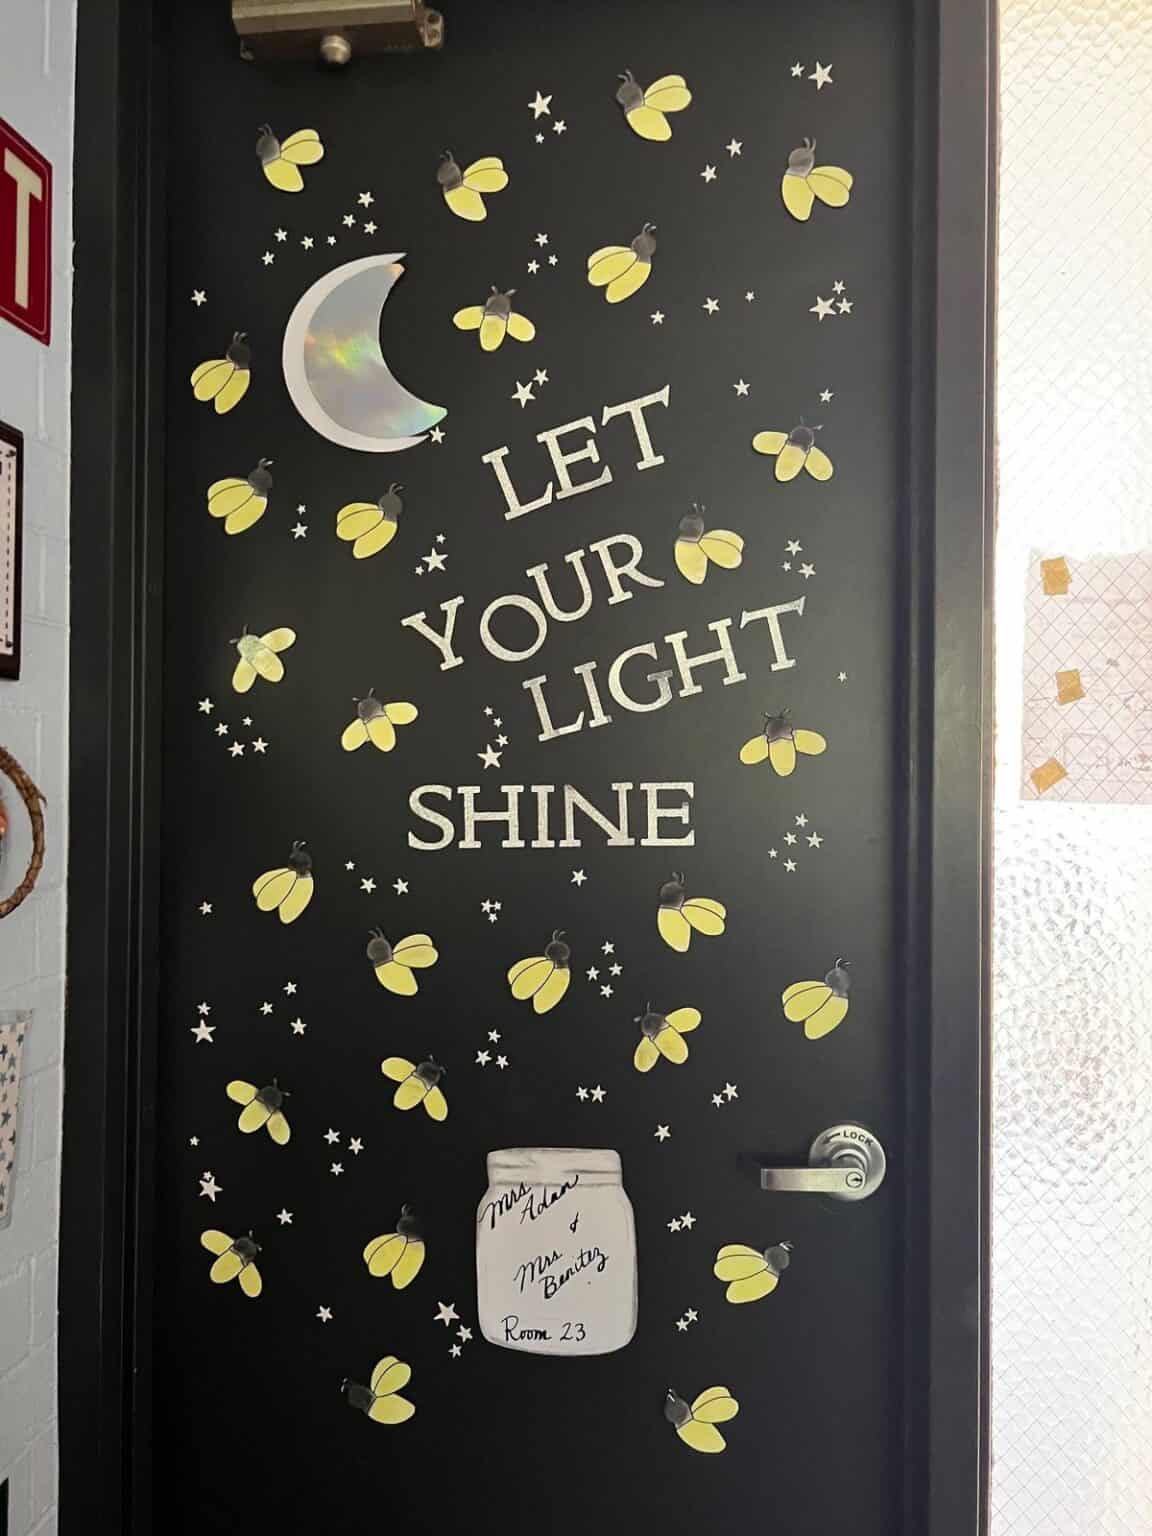 T
LET
YOUR
LIGHT
SHINE
LOCK
Mrs
Adan
&
Mrs
Benitez
Room 23